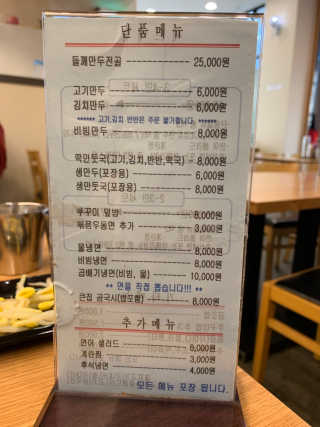 단품메뉴
들깨만두전골 ---------------- 25,000원
고기만두 ---------------- 6,000원
김치만두 ---------------- 6,000원
****** 고기,김치 반반은 주문 불가합니다. ******
비빔만두 ---------------- 8,000원
떡만둣국(고기,김치,반반,떡국) -- 8,000원
생만두(포장용) ------------ 6,000원
생만둣국(포장용) ----------- 8,000원
쭈꾸미 덮밥 -------------- 8,000원
볶음우동면 추가 ------------ 3,000원
물냉면 ------------------ 8,000원
비빔냉면 ---------------- 8,000원
곱빼기냉면(비빔, 물) -------- 10,000원
** 면을 직접 뽑습니다!!! **
손칼국시(밥포함) ----------- 8,000원
추가메뉴
연어 샐러드 -------------- 8,000원
계란찜 ------------------ 3,000원
후식냉면 ---------------- 4,000원
모든 메뉴 포장 됩니다.